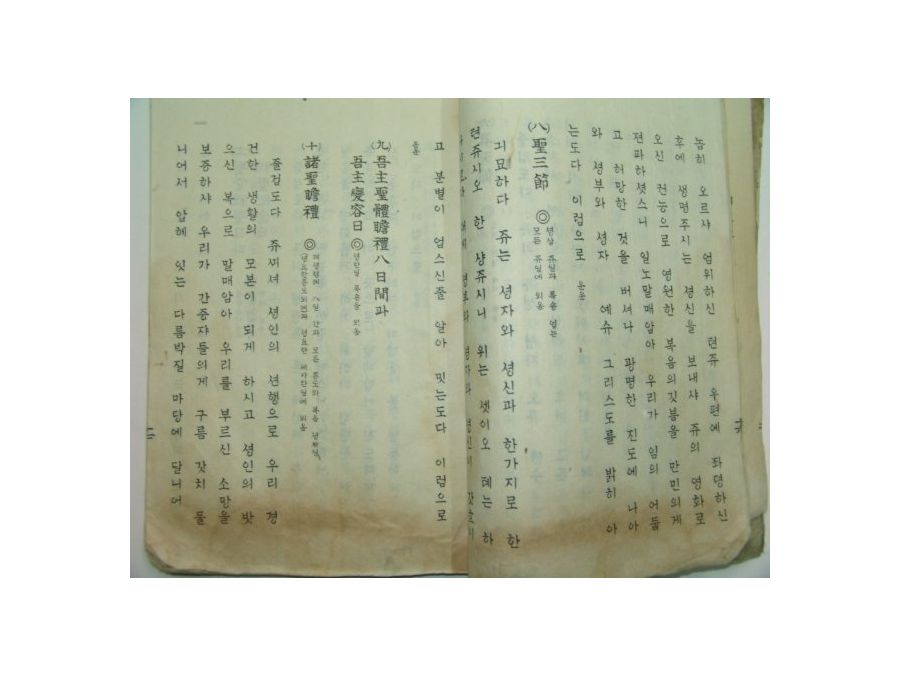 놉히 오르샤 엄위하신 텬쥬 우편에 좌뎡하신
후에 생명주시는 셩신을 보내샤 쥬의 영화로
오신 권능으로 영원한 복음의깃븜을 만민의게
젼파하셧스니 일노말매암아 우리가 임의 어둡
고 허망한 것을 버셔나 광명한 진도에 나아
와 셩부와 셩자 예슈 그리스도를 밝히 아
는도다 이럼으로 운운
(八) 聖三節 ◎
긔묘하다 쥬는 셩자와 셩신과 한가지로 한
텬쥬시오 한 샹쥬시니 위는 셋이오 톄는 하
고 분별이 업스신줄 알아 밋는도다 이럼으로
운운
(九) 吾主聖體瞻禮八日間과
吾主變容日 ◎
(十) 諸聖瞻禮 ◎
즐겁도다 쥬씨셔 셩인의 션행으로 우리 경
건한 생활의 모본이 되게 하시고 셩인의 밧
으신 복으로 말매암아 우리를 부르신 소망을
보증하샤 우리가 간증쟈들의게 구름 갓치 둘
니어서 압헤 잇는 다름박질 마당에 달니어